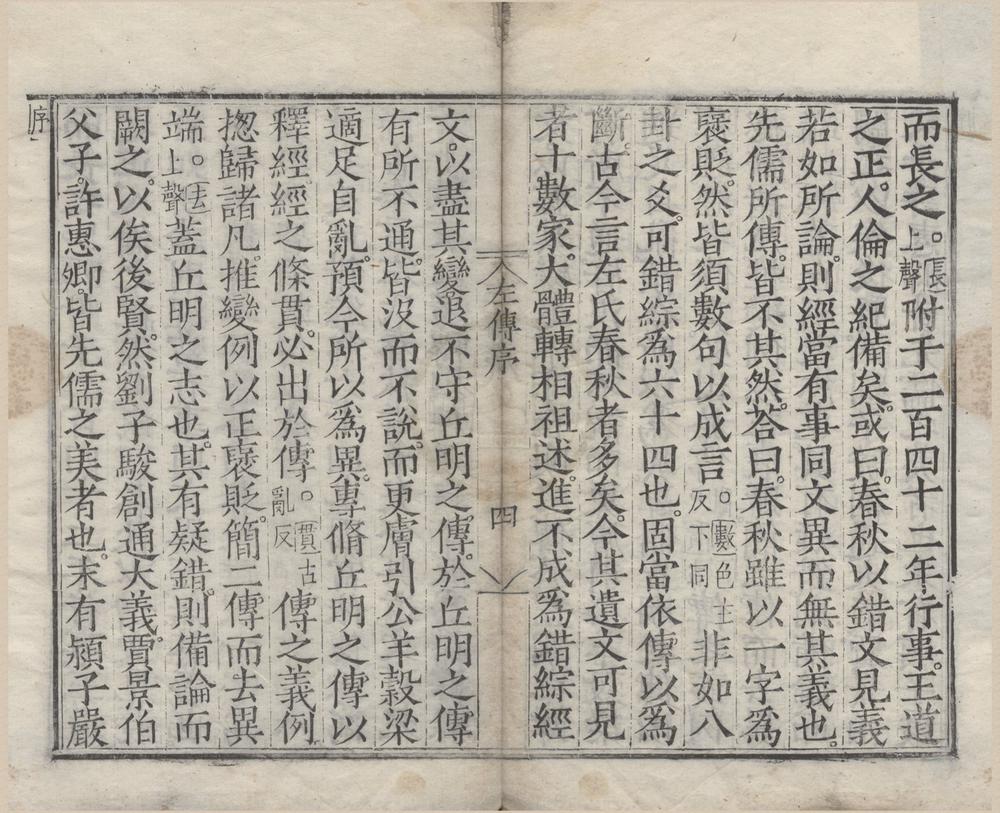 而長之。長上聲附于二百四十二年行事。王道
之正。人倫之紀備矣。或曰。春秋以錯文見義。
若如所論。則經當有事同文異而無其義也。
先儒所傳。皆不其然。荅曰。春秋雖以一字爲
襃貶。然皆須數句以成言。數色主反下同非如八
卦之爻。可錯綜爲六十四也。固當依傳以爲
斷。古今言左氏春秋者多矣。今其遺文可見
者十數家。大體轉相祖述。進不成爲錯綜經
左傳序
四
文。以盡其變。退不守丘明之傳。於丘明之傳
有所不通。皆沒而不說。而更膚引公羊榖梁。
適足自亂。預今所以爲異。專脩丘明之傳以
釋經。經之條貫。必出於傳。貫古亂反傳之義例
揔歸諸凡。推變例以正襃貶。簡二傳而去異
端。去上聲蓋丘明之志也。其有疑錯。則備論而
闕之。以俟後賢。然劉子駿創通大義。賈景伯
父子。許惠卿。皆先儒之美者也。末有潁子嚴
序